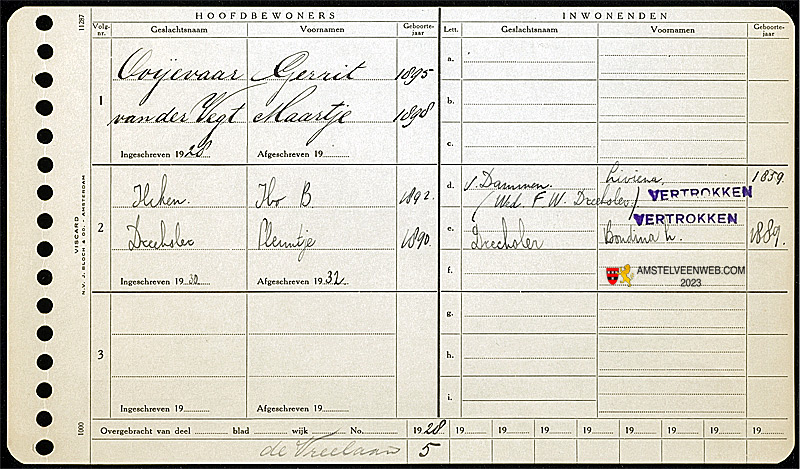 11287
HOOFDBEWONERS
INWONENDEN
Volg-nr.
Geslachtsnaam
Voornamen
Geboorte-jaar
Lett.
Geslachtsnaam
Voornamen
Geboorte-jaar
1
Ooijevaar Gerrit 1895
van der Vegt Maartje 1898
Ingeschreven 1928
Afgeschreven 19
a.
b.
c.
2
Ihno B. 1892.
Drechsler 1890
Ingeschreven 1930
Afgeschreven 1932
d. v. Dammen. Liviena, 1859.
(Wd. F. W. Drechsler) VERTROKKEN
VERTROKKEN
e. Drechsler Bondina h. 1889.
f.
AMSTELVEENWEB.COM
2023
3
Ingeschreven 19
Afgeschreven 19
g.
h.
i.
VISCARD
N.V. J. BLOCH & CO. - AMSTERDAM
1000
Overgebracht van deel blad wijk No. 1928 19 19 19 19 19 19 19 19
de Vreelaan 5